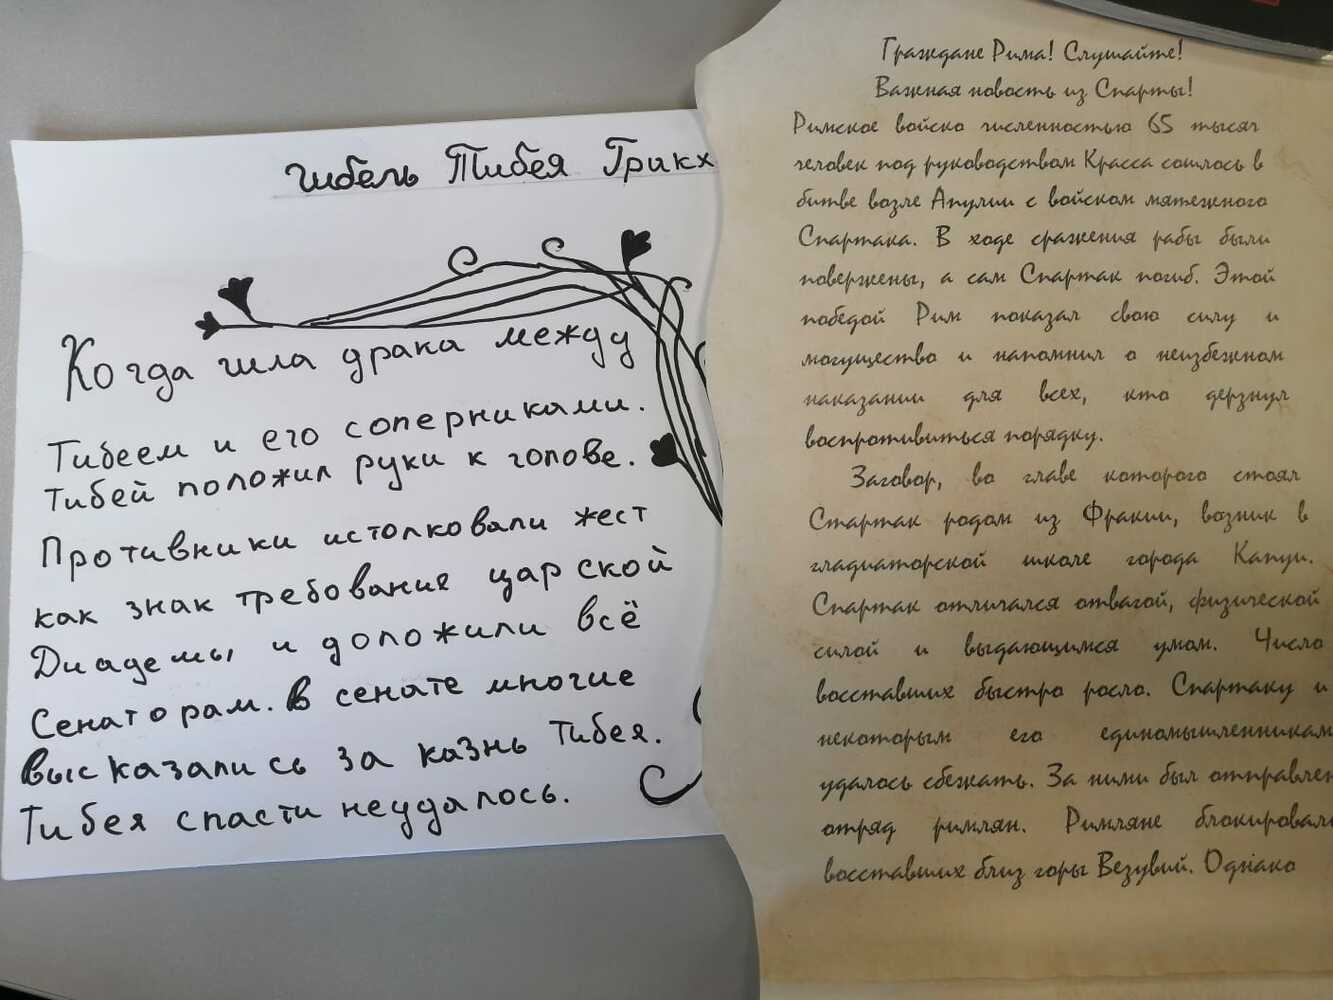 Гибель Тибея Грикх
Когда шла драка между
Тибеем и его соперниками.
Тибей положил руки к голове.
Противники истолковали жест
как знак требование царской
Диадемы и доложили всё
Сенаторам. В сенате многие
высказались за казнь Тибея.
Тибея спасти неудалось.
Граждане Рима! Слушайте!
Важная новость из Спарты!
Римское войско численностью 65 тысяч
человек под руководством Красса сошлось в
битве возле Апулии с войском мятежного
Спартака. В ходе сражения рабы были
повержены, а сам Спартак погиб. Этой
победой Рим показал свою силу и
могущество и напомнил о неизбежном
наказании для всех, кто дерзнул
воспротивиться порядку.
Заговор, во главе которого стоял
Стартак родом из Фракии, возник в
гладиаторской школе города Капуи.
Спартак отличался отвагой, физической
силой и выдающимся умом. Число
восставших быстро росло. Спартаку и
некоторым его единомышленникам
удалось сбежать. За ними был отправлен
отряд римлян. Римляне блокировали
восставших близ горы Везувий. Однако